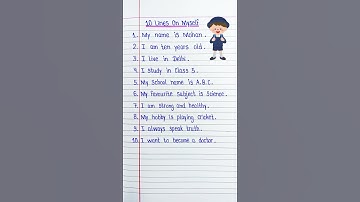 10 Lines On Myself
1. My name is Mohan.
2. I am ten years old.
3. I live in Delhi.
4. I study in Class 5.
5. My School name is A.B.C.
6. My favourite subject is Science.
7. I am strong and healthy.
8. My hobby is playing Cricket.
9. I always speak truth.
10. I want to become a doctor.